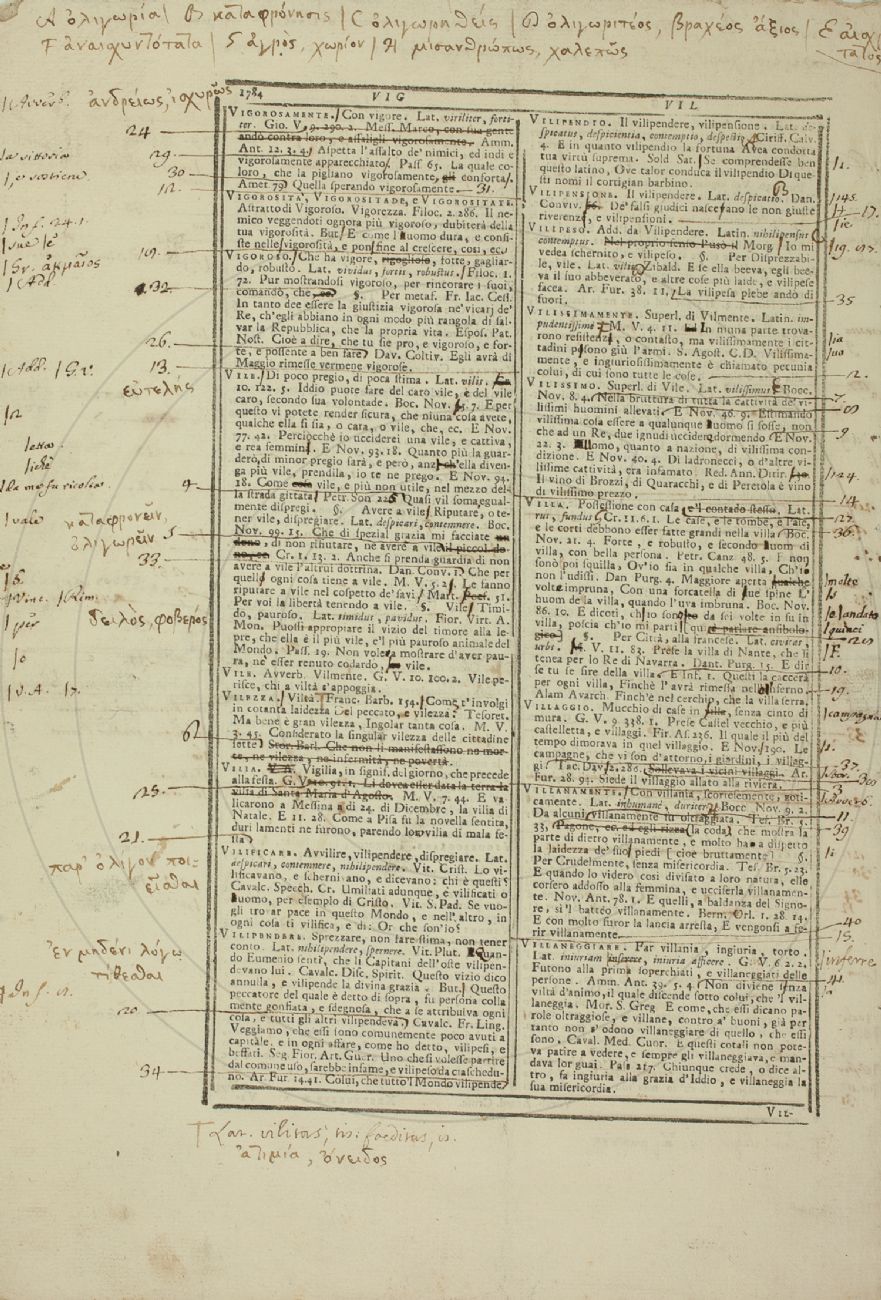 A ὀλιγωρία | B καταφρόνησις | C ὀλιγωρηθείς | D ὀλιγωριτέος, βραχέος ἄξιος | E
F ἀναισχυντότατα | G ἀγρὸς, χωρίον | H μισανθρώπως, χαλεπῶς
ἀνδρείως, ἰσχυρῶς
1784 VIG
VIGOROSAMENTE. Con vigore. Lat. viriliter, forti-
ter. Gio. V. 9. 290. 2. Mess. Marco, con sua gente
andò contra loro, e assaligli vigorosamente. Amm.
Ant. 12. 3. 4. Aspetta l'assalto de' nimici, ed indi e
vigorosamente apparecchiato. Pass. 65. La quale co-
loro, che la pigliano vigorosamente, gli conforta.
Amet. 79. Quella sperando vigorosamente. 31.
VIGOROSITÀ, VIGOROSITADE, e VIGOROSITATE.
Astratto di Vigoroso. Vigorezza. Filoc. 2. 286. Il ne-
mico veggendoti ognora più vigoroso, dubiterà della
tua vigorosità. But. E come l uomo dura, e consi-
ste nelle vigorosità, e ponsine al crescere, così, ec.
VIGOROSO. Che ha vigore, rigoglioso, forte, gagliar-
do, robusto. Lat. vividus, fortis, robustus. Filoc. 1.
72. Pur mostrandosi vigoroso, per rincorare i suoi,
comandò, che, §. Per metaf. Fr. Iac. Cess.
In tanto dee essere la giustizia vigorosa ne' vicarj de'
Re, ch'egli abbiano in ogni modo più rangola di sal-
var la Repubblica, che la propria vita. Espos. Pat.
Nost. Cioè a dire, che tu sie pro, e vigoroso, e for-
te, e possente a ben fare. Dav. Coltiv. Egli avrà di
Maggio rimesse vermene vigorose.
VILE. Di poco pregio, di poca stima. Lat. vilis.
10. 122. 5. Iddio puote fare del caro vile, e del vile
caro, secondo sua volontade. Boc. Nov. 15. 7. E per
questo vi potete render sicura, che niuna cosa avete,
qualche ella si sia, o cara, o vile, che, ec. E Nov.
77. 42. Perciocchè io ucciderei una vile, e cattiva,
e rea femmina. E Nov. 93. 18. Quanto più la guar-
derò, di minor pregio sarà, e però, anzi ch'ella diven-
ga più vile, prendila, io te ne prego. E Nov. 94.
18. Come vile, e più non utile, nel mezzo del-
la strada gittata. Petr. Son 226. Quasi vil soma egual-
mente dispregi. §. Avere a vile. Riputare, o te-
ner vile, dispregiare. Lat. despicari, contemnere. Boc.
Nov. 99. 15. Che di spezial grazia mi facciate un
dono, di non rifiutare, ne avere a vile il piccol do-
no, ec. Cr. 1. 13. 2. Anche si prenda guardia di non
avere a vile l'altrui dottrina. Dan. Conv. 1. Che per
quelli ogni cosa tiene a vile. M. V. 5. 2. Le fanno
riputare a vile nel cospetto de' savi. Maestr. Poet. 51.
Per voi la libertà tenendo a vile. §. Vile. Timi-
do, pauroso. Lat. timidus, pavidus. Fior. Virt. A.
Mon. Puossi appropiare il vizio del timore alla le-
pre, che ella è il più vile, e 'l più pauroso animale del
Mondo. Pass. 19. Non volea mostrare d'aver pau-
ra, ne' esser renuto codardo, vile.
VILE. Avverb. Vilmente. G. V. 10. 100. 2. Vile pe-
risce, chi a viltà s'appoggia.
VILEZZA. Viltà. Franc. Barb. 154. Come t'involgi
in cotanta laidezza del peccato, e vilezza. Tesoret.
Ma bene è gran vilezza, Ingolar tanta cosa. M. V.
3. 45. Considerato la singular vilezza delle cittadine
sotte. Stor. Barl. Che non li manifestassono ne mor-
te, ne vilezza, ne infermità, ne povertà.
VILIA. Vigilia, in signif. del giorno, che precede
alla festa. G. V. Li dovea esser data la terra la
vilia di Santa Maria d'Agosto. M. V. 7. 44. E va-
licarono a Messina a dì 24. di Dicembre, la vilia di
Natale. E 11. 28. Come a Pisa fu la novella sentita,
duri lamenti ne furono, parendo loro vilia di mala fe-
sta.
VILIFICARE. Avvilire, vilipendere, dispregiare. Lat.
despicari, contemnere, nihilipendere. Vit. Crist. Lo vi-
lificavano, e schernivano, e dicevano: chi è questi?
Cavalc. Specch. Cr. Umiliati adunque, e vilificati o
uomo, per esemplo di Cristo. Vit. S. Pad. Se vuo-
gli trovar pace in questo Mondo, e nell'altro, in
ogni cosa ti vilifica, e dì: Or che son'io?
VILIPENDERE. Sprezzare, non fare stima, non tener
conto. Lat. nihilipendere, spernere. Vit. Plut. Quan-
do Eumenio sentì, che li Capitani dell'oste vilipen-
devano lui. Cavalc. Disc. Spirit. Questo vizio dico
annulla, e vilipende la divina grazia. But. Questo
peccatore del quale è detto di sopra, fu persona colla
mente gonfiata, e sdegnosa, che a se attribuiva ogni
cosa, e tutti gli altri vilipendeva. Cavalc. Fr. Ling.
Veggiamo, che essi sono comunemente poco avuti a
capitale, e in ogni affare, come ho detto, vilipesi, e
beffati. Seg. Fior. Art. Guer. Uno che si volesse partire
dal comune uso, sarebbe infame, e vilipeso da ciaschedu-
no. Ar. Fur. 14. 41. Colui, che tutto 'l Mondo vilipende
VIL
VILIPENDIO. Il vilipendere, vilipensione. Lat. de-
spicatus, despicientia, contemptio, despectio. Ciriff. Calv.
4. E in quanto vilipendio la fortuna Avea condotta
tua virtù suprema. Sold Sat. Se comprendesse ben
questo latino, Ove talor conduca il vilipendio Di que-
sti nomi il cortigian barbino.
VILIPENSIONE. Il vilipendere. Lat. despicatio. Dan.
Conviv. De' falsi giudici nascesano le non giuste
riverenze, e vilipensioni.
VILIPESO. Add. da Vilipendere. Latin. nihilipensus,
contemptus. Nel proprio senso Pusò il Morg. Io mi
vedea schernito, e vilipeso. §. Per Disprezzabi-
le, vile. Lat. vilis. Zibald. E se ella beeva, egli bee-
va il suo abbeverato, e altre cose più laide, e vilipese
facea. Ar. Fur. 38. 11. La vilipesa plebe andò di
fuori.
VILISSIMAMENTE. Superl. di Vilmente. Latin. im-
pudentissime. M. V. 4. 11. In niuna parte trova-
rono resistenza, o contasto, ma vilissimamente i cit-
tadini posono giù l'armi. S. Agost. C. D. Vilissima-
mente, e ingiuriosissimamente è chiamato pecunia
colui, di cui sono tutte le cose.
VILISSIMO. Superl. di Vile. Lat. vilissimus. Bocc.
Nov. 8. 4. Nella bruttura di tutta la cattività de' vi-
lissimi huomini allevati. E Nov. 46. 9. Estimando
vilissima cosa essere a qualunque uomo si fosse, non
che ad un Re, due ignudi uccidere dormendo. E Nov.
22. 3. Uomo, quanto a nazione, di vilissima con-
dizione. E Nov. 40. 4. Di ladronecci, o d'altre vi-
lissime cattività, era infamato. Red. Ann. Ditir.
Il vino di Brozzi, di Quaracchi, e di Peretola è vino
di vilissimo prezzo.
VILLA. Possessione con casa, e 'l contado stesso. Lat.
rus, fundus. Cr. 11. 6. 1. Le case, e le tombe, e l'aie,
e le corti debbono esser fatte grandi nella villa. Boc.
Nov. 21. 4. Forte, e robusto, e secondo uom di
villa, con bella persona. Petr. Canz 48. 5. E non
sonò poi squilla, Ov'io sia in qualche villa, Ch'io
non l'udissi. Dan Purg. 4. Maggiore aperta
volte impruna, Con una forcatella di sue spine L'
huom de la villa, quando l'uva imbruna. Boc. Nov.
86. 10. E dicoti, ch'io son da sei volte in su in
villa, poscia ch'io mi partì
§. Per Città, alla francese. Lat. civitas,
urbs. M. V. 11. 83. Prese la villa di Nante, che si
tenea per lo Re di Navarra. Dant. Purg. 15. E dir
se tu se sire della villa. E Inf. 1. Questi la caccerà
per ogni villa, Finchè l'avrà rimessa nell'inferno.
Alam Avarch. Finch'è nel cerchio, che la villa serra.
VILLAGGIO. Mucchio di case in , senza cinto di
mura. G. V. 9. 338. 1. Prese Castel vecchio, e più
castelletta, e villaggi. Fir. As 236. Il quale il più del
tempo dimorava in quel villaggio. E Nov. 190. Le
campagne, che vi son d'attorno, i giardini, i villag-
gi. Tac. Dav. 2. 280. Sollevava i vicini villaggi. Ar.
Fur. 28. 92. Siede il villaggio allato alla riviera.
VILLANAMENTE. Con villania, scortesemente, zoti-
camente. Lat. inhumanè, duriter. Bocc. Nov. 9. 2.
Da alcuni villanamente fu oltraggiata. Tes. Br. 5.
33. Pagone, ec. ed egli rizza la coda, che mostra la
parte di dietro villanamente, e molto ha a dispetto
la laidezza de' suoi piedi [cioè bruttamente] §.
Per Crudelmente, senza misericordia. Tes. Br. 5. 23.
E quando lo videro così divisato a loro natura, elle
corsero addosso alla femmina, e ucciserla villanamen-
te. Nov. Ant. 78. 1. E quelli, a baldanza del Signo-
re, sì 'l battéo villanamente. Bern. Orl. 1. 28. 14.
E con molto furor la lancia arresta, E vengonsi a fe-
rir villanamente.
VILLANEGGIARE. Far villania, ingiuria, torto.
Lat. iniuriam inferre, iniuria afficere. G. V. 6 2. 2.
Furono alla prima soperchiati, e villaneggiati delle
persone. Amm. Ant. 39. 5. 4. Non diviene senza
viltà d'animo, il quale discende sotto colui, che 'l vil-
laneggia. Mor. S. Greg. E come, che essi dicano pa-
role oltraggiose, e villane, contro a' buoni, già per
tanto non s'odono villaneggiare di quello, che essi
sono. Caval. Med. Cuor. E questi cotali non pote-
va patire a vedere, e sempre gli villaneggiava, e man-
dava lor guai. Pass 217. Chiunque crede, o dice al-
tro, fa ingiuria alla grazia d'Iddio, e villaneggia la
sua misericordia.
VIL-
24
29
30
12
19
32
26
13
εὐτελής
9
καταφρονεῖν,
ὀλιγωρεῖν 5
33
δειλὸς, φοβερός
6
25
21
παρ' ὀλίγον ποι-
εῖσθαι
ἐν μηδενὶ λόγῳ
τίθεσθαι
20
34
17
35
12
7
9
14
36
10
19
37
11
39
40
15
Lat. vilitas, tis: foeditas, is.
ἀτιμία, ὄνειδος